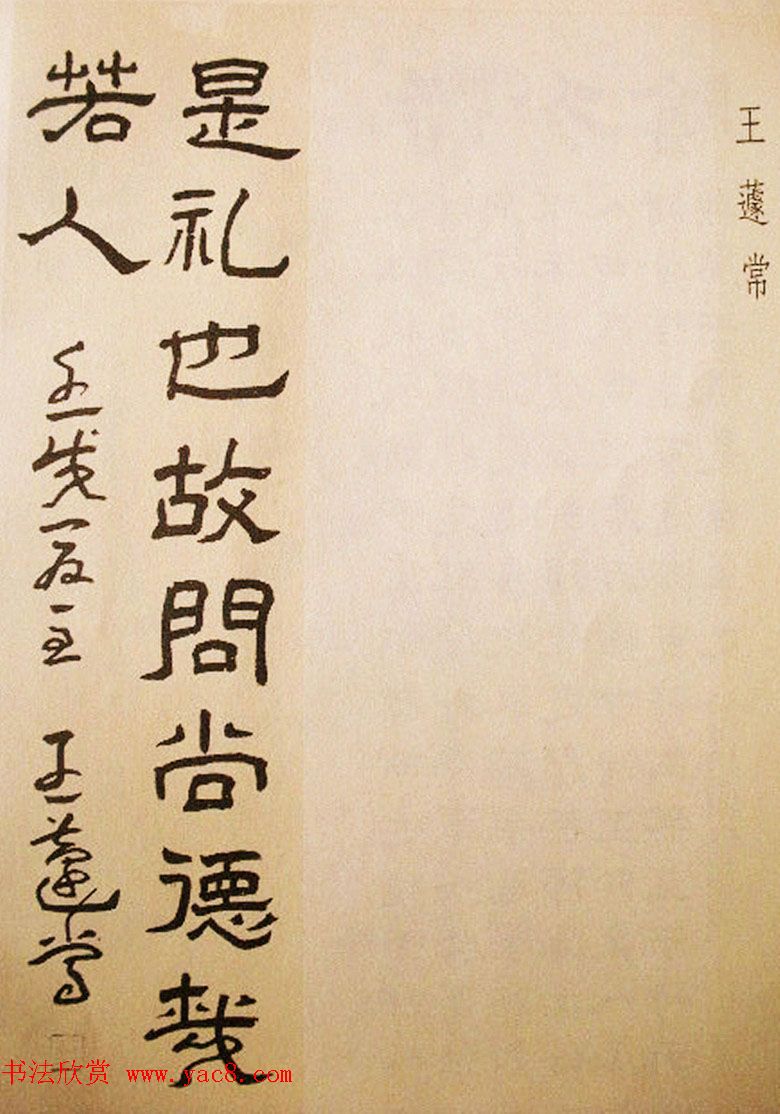 王蘧常
是礼也故問尚德哉
若人
壬戌夏五 王蘧常
书法欣赏 www.yac8.com